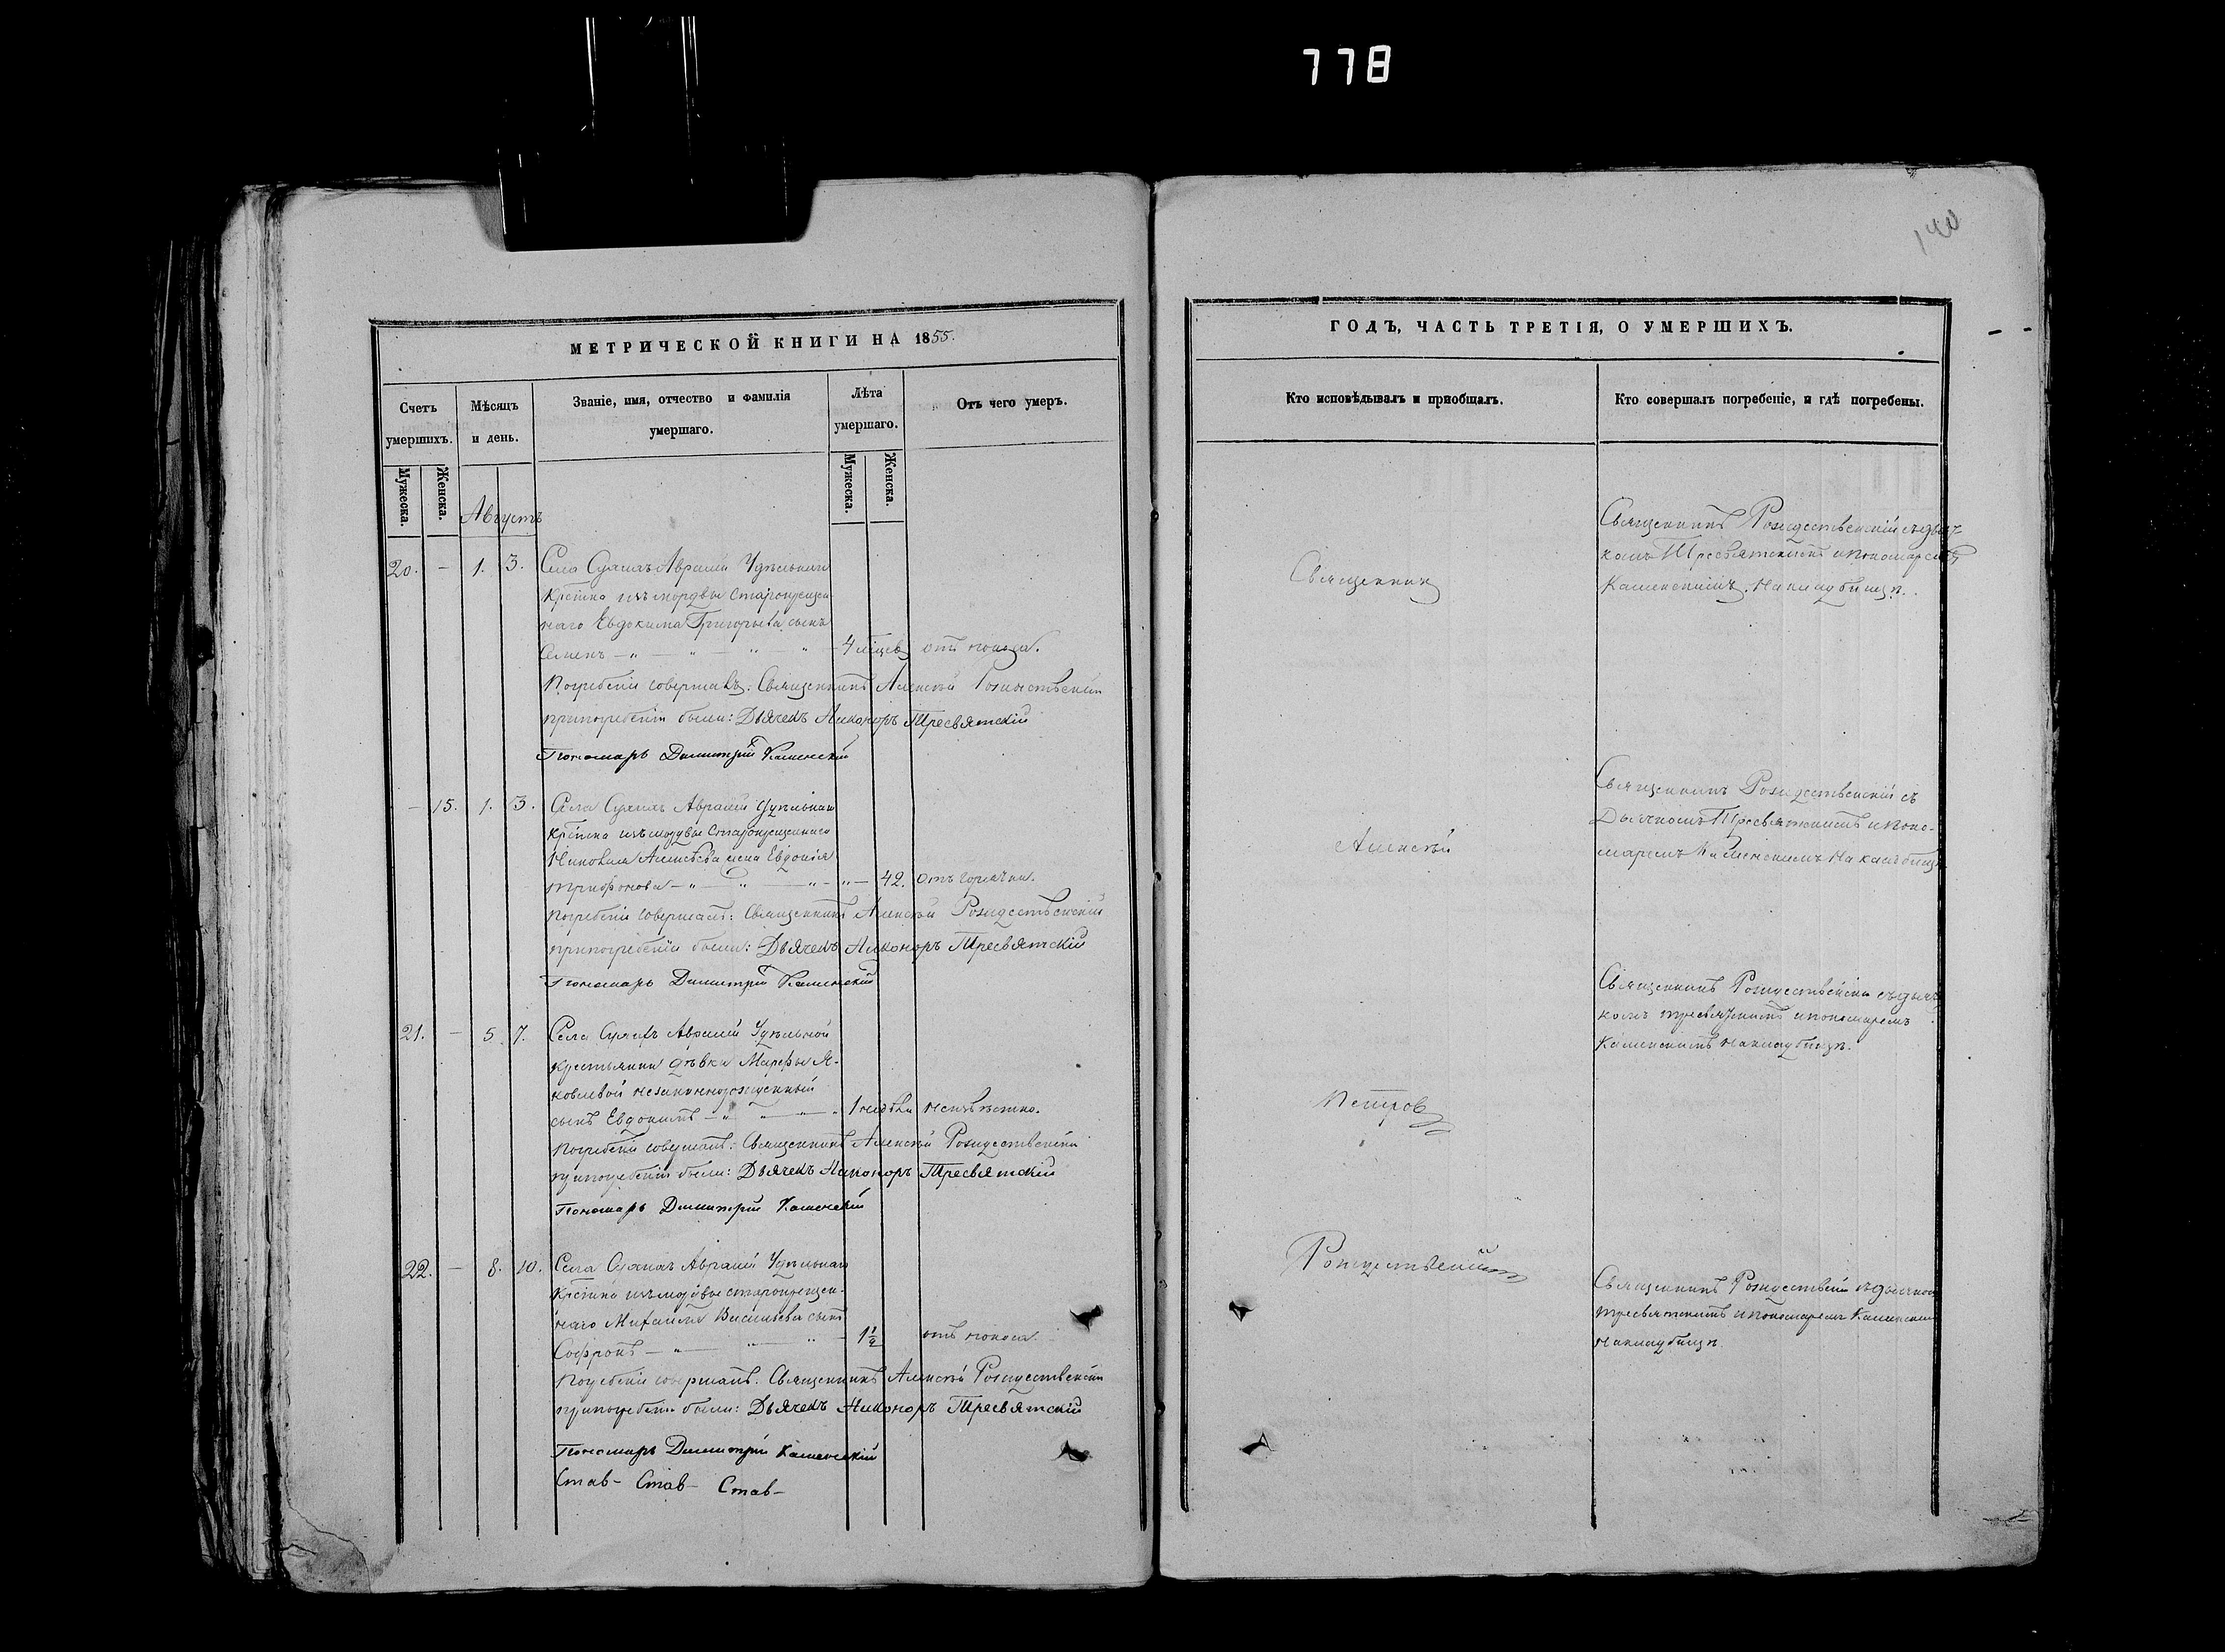 778
140
МЕТРИЧЕСКОЙ КНИГИ НА 1855.
Счетъ умершихъ.
Мѣсяцъ и день.
Званіе, имя, отчество и фамилія умершаго.
Лѣта умершаго.
Отъ чего умеръ.
Мужеска.
Женска.
Мужеска.
Женска.
Августъ
20. — 1. 3. Села Аврали Удѣльнаго
изъ мордвы
наго Евдокима Григорьева сынъ
Семенъ — 4 отъ поноса.
Погребеніе совершалъ: Священникъ Алексѣй Рождественскій
при погребеніи были: Дьячекъ Никоноръ Тресвятскій
Пономарь Димитрій Каменскій
— 15. 1. 3. Села Аврали Удѣльнаго
изъ мордвы старокрещеннаго
Алексѣева жена Евдокія
Трифонова — 42. отъ горячки.
Погребеніе совершалъ: Священникъ Алексѣй Рождественскій
при погребеніи были: Дьячекъ Никоноръ Тресвятскій
Пономарь Димитрій Каменскій
21. — 5 7. Села Аврали Удѣльной
крестьянки дѣвки Марфы Я-
ковлевой незаконнорожденный
сынъ Евдокимъ — 1 недѣли неизвѣстно.
Погребеніе совершалъ: Священникъ Алексѣй Рождественскій
при погребеніи были: Дьячекъ Никоноръ Тресвятскій
Пономарь Димитрій Каменскій
22. — 8. 10. Села Аврали Удѣльнаго
изъ мордвы старокрещен-
наго Михаила Васильева сынъ
Софронъ — 1½ отъ поноса.
Погребеніе совершалъ: Священникъ Алексѣй Рождественскій
при погребеніи были: Дьячекъ Никоноръ Тресвятскій
Пономарь Димитрій Каменскій
Став- Став- Став-
ГОДЪ, ЧАСТЬ ТРЕТІЯ, О УМЕРШИХЪ.
Кто исповѣдывалъ и пріобщалъ.
Кто совершалъ погребеніе, и гдѣ погребены.
Священникъ
Алексѣй
Петровъ
Рождественскій
Священникъ Рождественскій съ дьяч-
комъ Тресвятскимъ и пономаремъ
Каменскимъ. на кладбищѣ.
Священникъ Рождественскій съ
Дьячкомъ Тресвятскимъ и поно-
маремъ Каменскимъ на кладбищѣ
Священникъ Рождественскій съ дьяч-
комъ Тресвятскимъ и пономаремъ
Каменскимъ на кладбищѣ.
Священникъ съ дьячкомъ
Тресвятскимъ и пономаремъ Каменскимъ
на кладбищѣ.